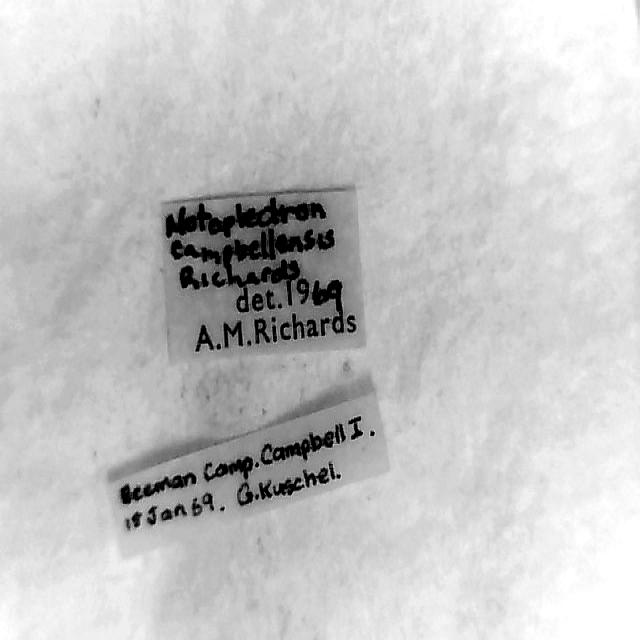 Notoplectron
campbellensis
Richards
det. 1969
A.M.Richards
Beeman Camp. Campbell I.
Jan 69. G. Kuschel.